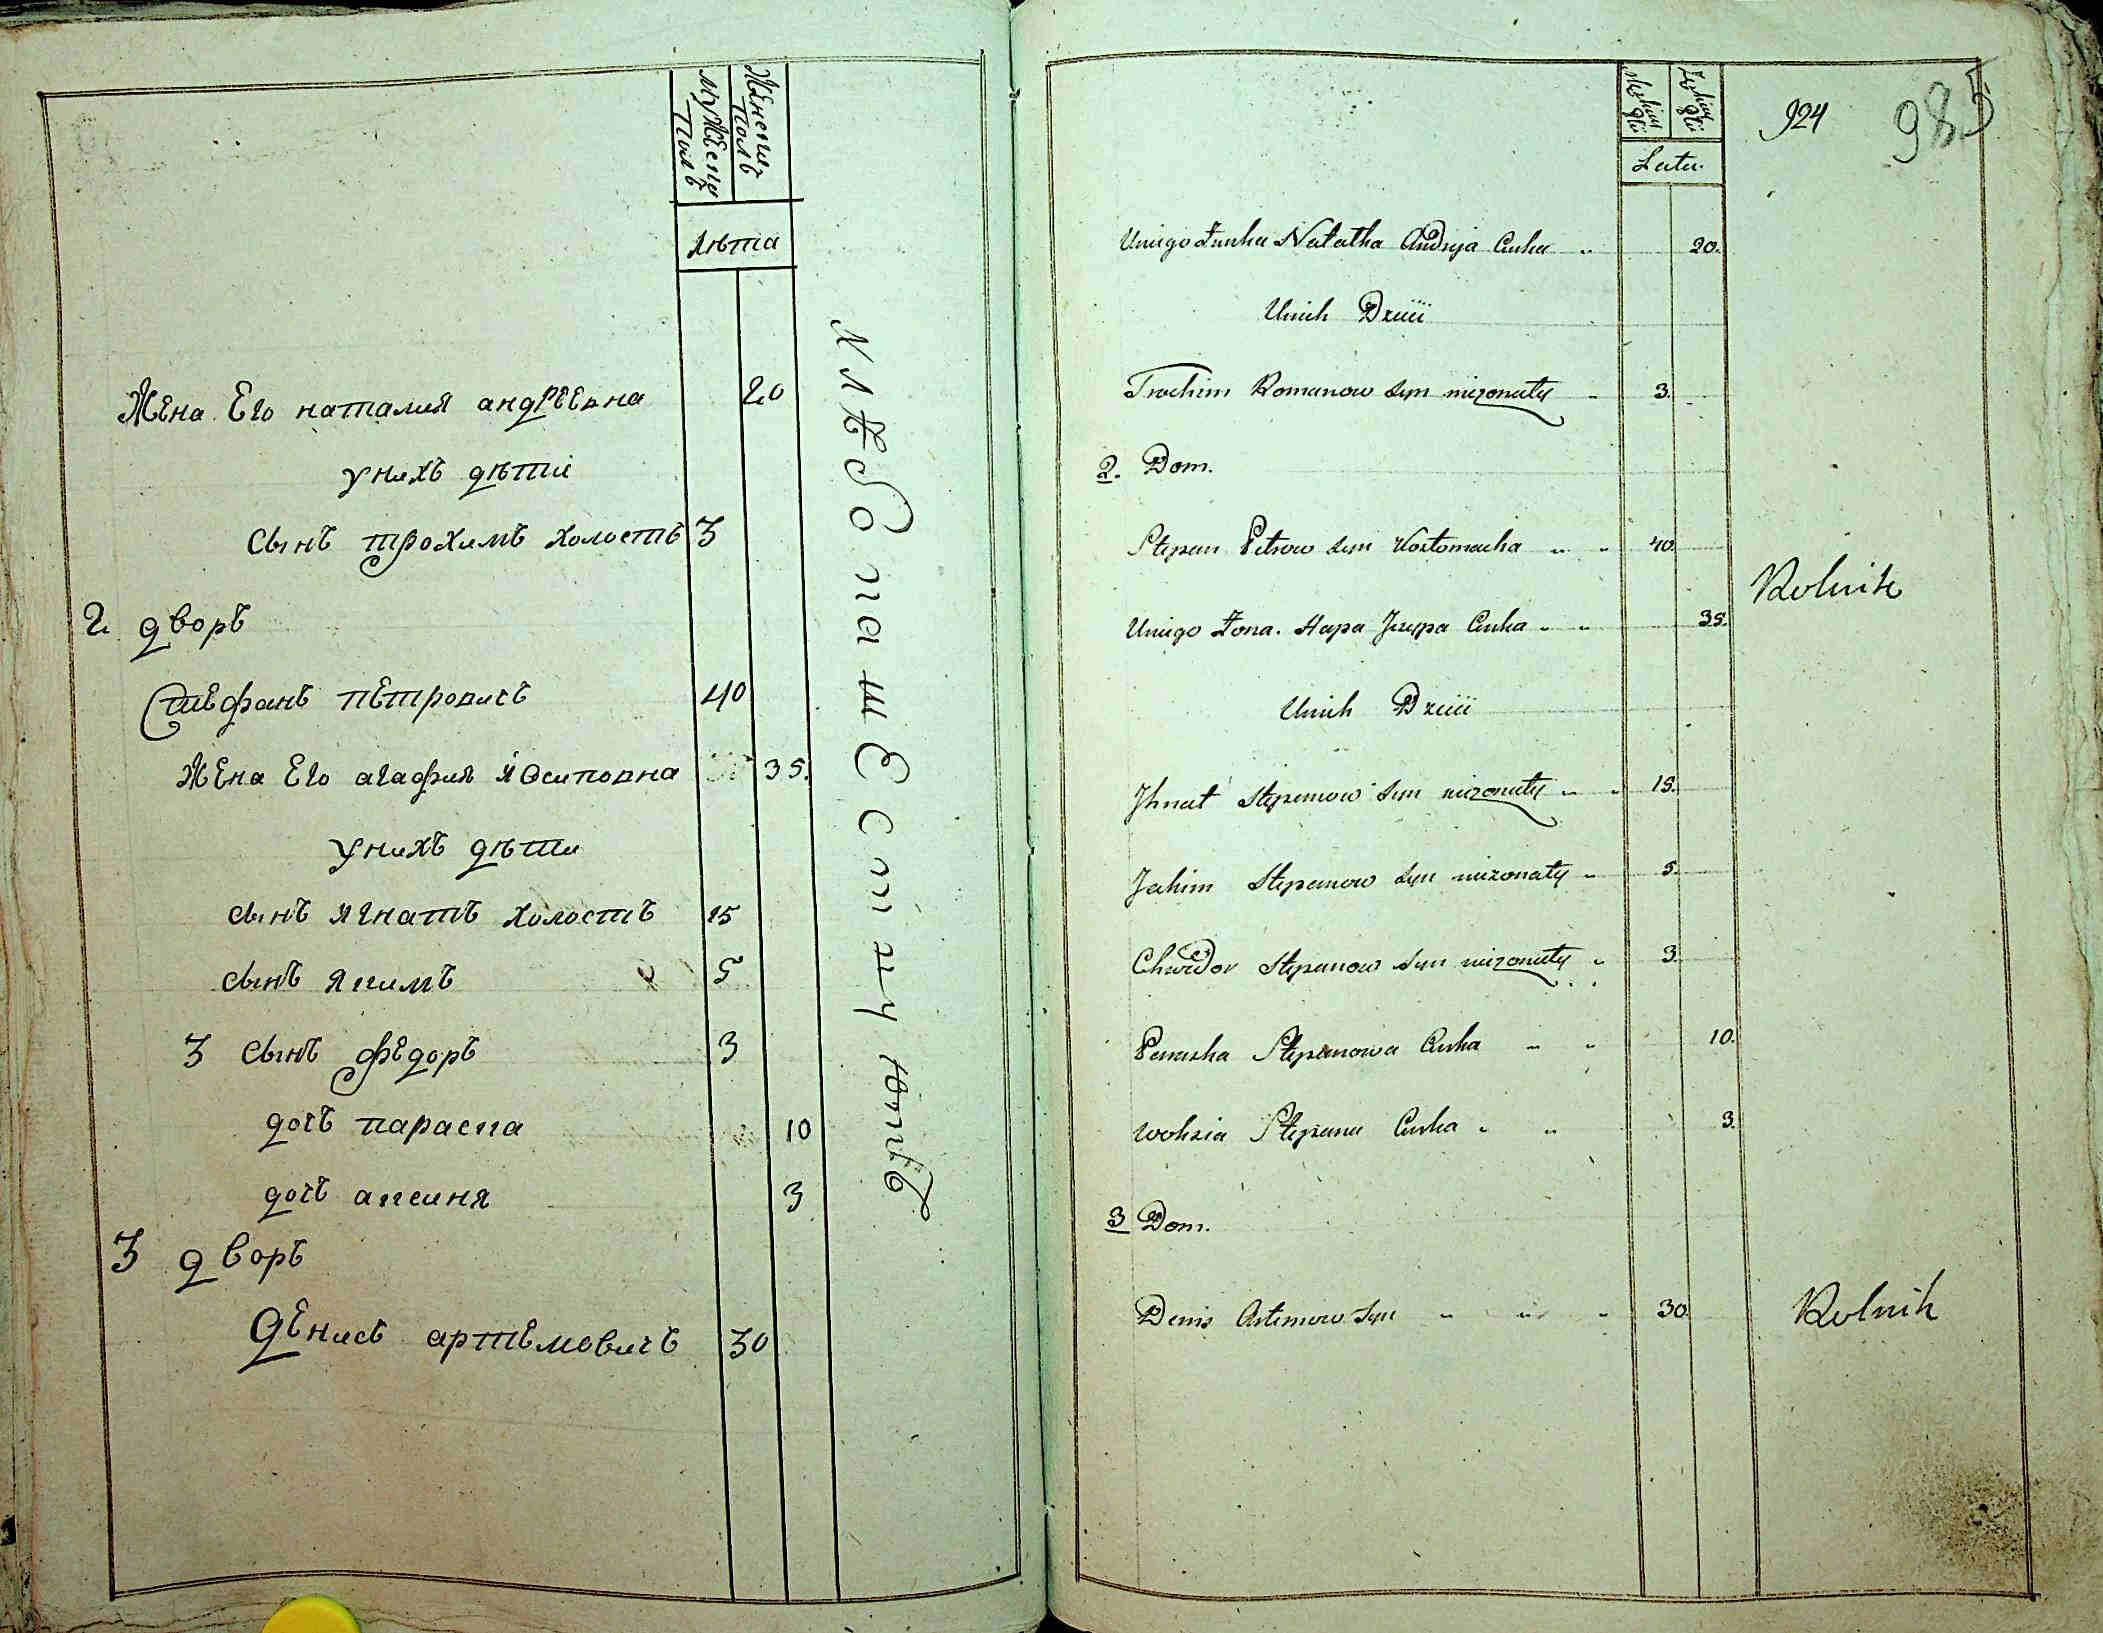 Мужеска Полъ
Женска Полъ
Лѣта
Жена Его наталия андрѣевна 20
у нихъ дѣти
сынъ трохимъ холостъ 3
2 дворъ
Стефанъ пѣтровичъ 40
Жена Его агафия Иосиповна 35.
у нихъ дѣти
сынъ Игнатъ холостъ 15
сынъ Якимъ 5
3 сынъ фѣдоръ 3
дочъ параска 10
дочъ аксиня 3
3 дворъ
Дѣнисъ артѣмовичъ 30
924
985
Latu.
Uniego Żonka Natalka Andreja Curka 20.
Unich Dzieci
Trochim Romanow syn nieżonaty 3.
2. Dom.
Stepan Petrow syn Kostomacha 40.
Rolnik
Uniego Żona. Hapa Jozypa Curka 35.
Unich Dzieci
Jhnat Stepanow syn nieżonaty 15.
Jakim Stepanow syn nieżonaty 5.
Chwedor Stepanow syn nieżonaty 3.
Paraska Stepanowa Curka 10.
Woksia Stepana Curka 3.
3 Dom.
Denis Artemow syn 30
Rolnik